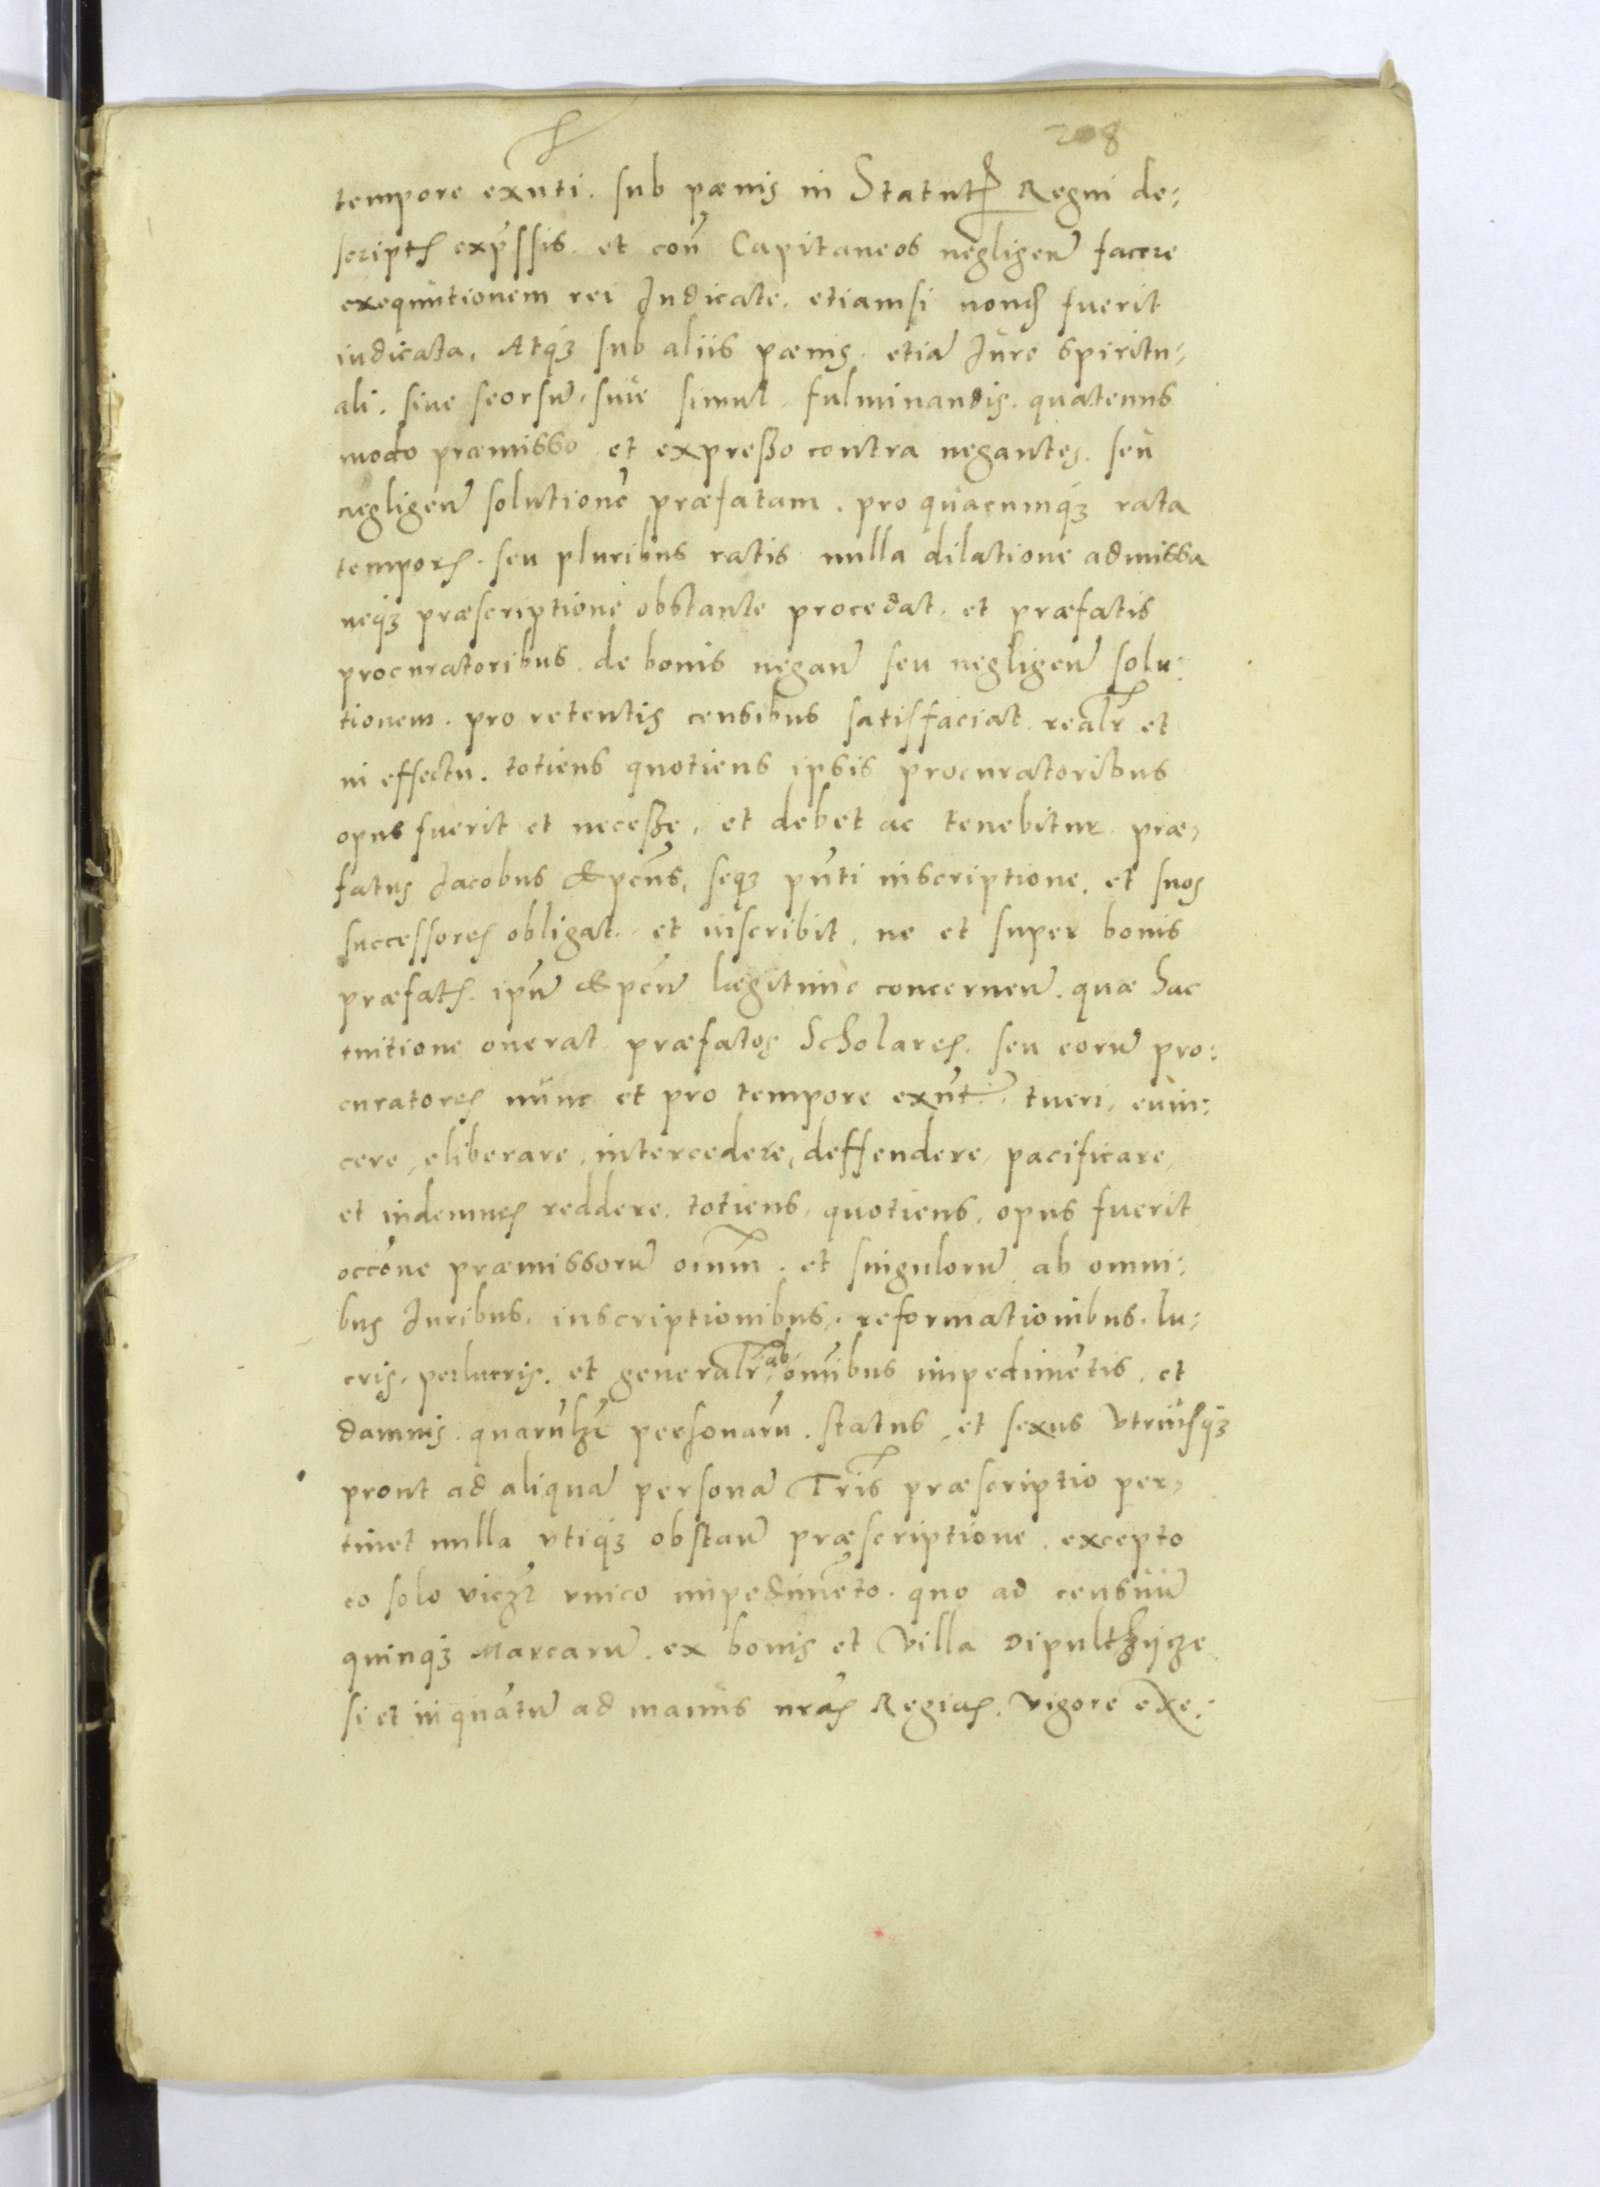 208
tempore exnti. sub pœnis in Statut Regni de:
script expssis. et con Capitaneos negligen facere
exequutionem rei Iudicate. etiamsi nond fuerit
iudicata. Atq3 sub aliis pœnis. etiã Iure spiritu:
ali. siue seorsũ, siue simul. fulminandis. quatenus
modo præmisso et expresso contra negantes. seu
negligen solutionẽ præfatam. pro quacumq3 rata
tempor. seu pluribus ratis nulla dilatione admissa
neq3 præscriptione obstante procedat. et præfatis
procuratoribus de bonis negan seu negligen solu:
tionem. pro retentis censibus satisfaciat realr et
in effectu. totiens quotiens ipsis procuratoribus
opus fuerit et necesse, et debet ac tenebitur præ,
fatus Iacobus Æpcus, seq3 pnti inscriptione, et suos
successores obligat. et inscribit, ne et super bonis
præfat. ipũ Æpcũ lægitime concernen. quæ hac
tuitione onerat præfatos Scholares. seu eorũ pro:
curatores nunc et pro tempore exnt. tueri, euin:
cere, eliberare, intercedere, deffendere, pacificare,
et indemnes reddere. totiens, quotiens, opus fuerit
occõne præmissorũ oium. et singulorũ ab omni:
bus Iuribus, inscriptionibus, reformationibus. lu:
cris, perlucris. et generalr, ab omibus impedimẽtis, et
damnis. quarũlze personaru. status, et sexus vtriusq3
prout ad aliquã personã Tris præscriptio per,
tinet nulla vtiq3 obstan præscriptione. excepto
eo solo vicz vnico impedimẽto. quo ad censuũ
quinq3 Marcarũ. ex bonis et Villa Dipultzycze
si et in quãtũ ad manus nras Regias. vigore exe: